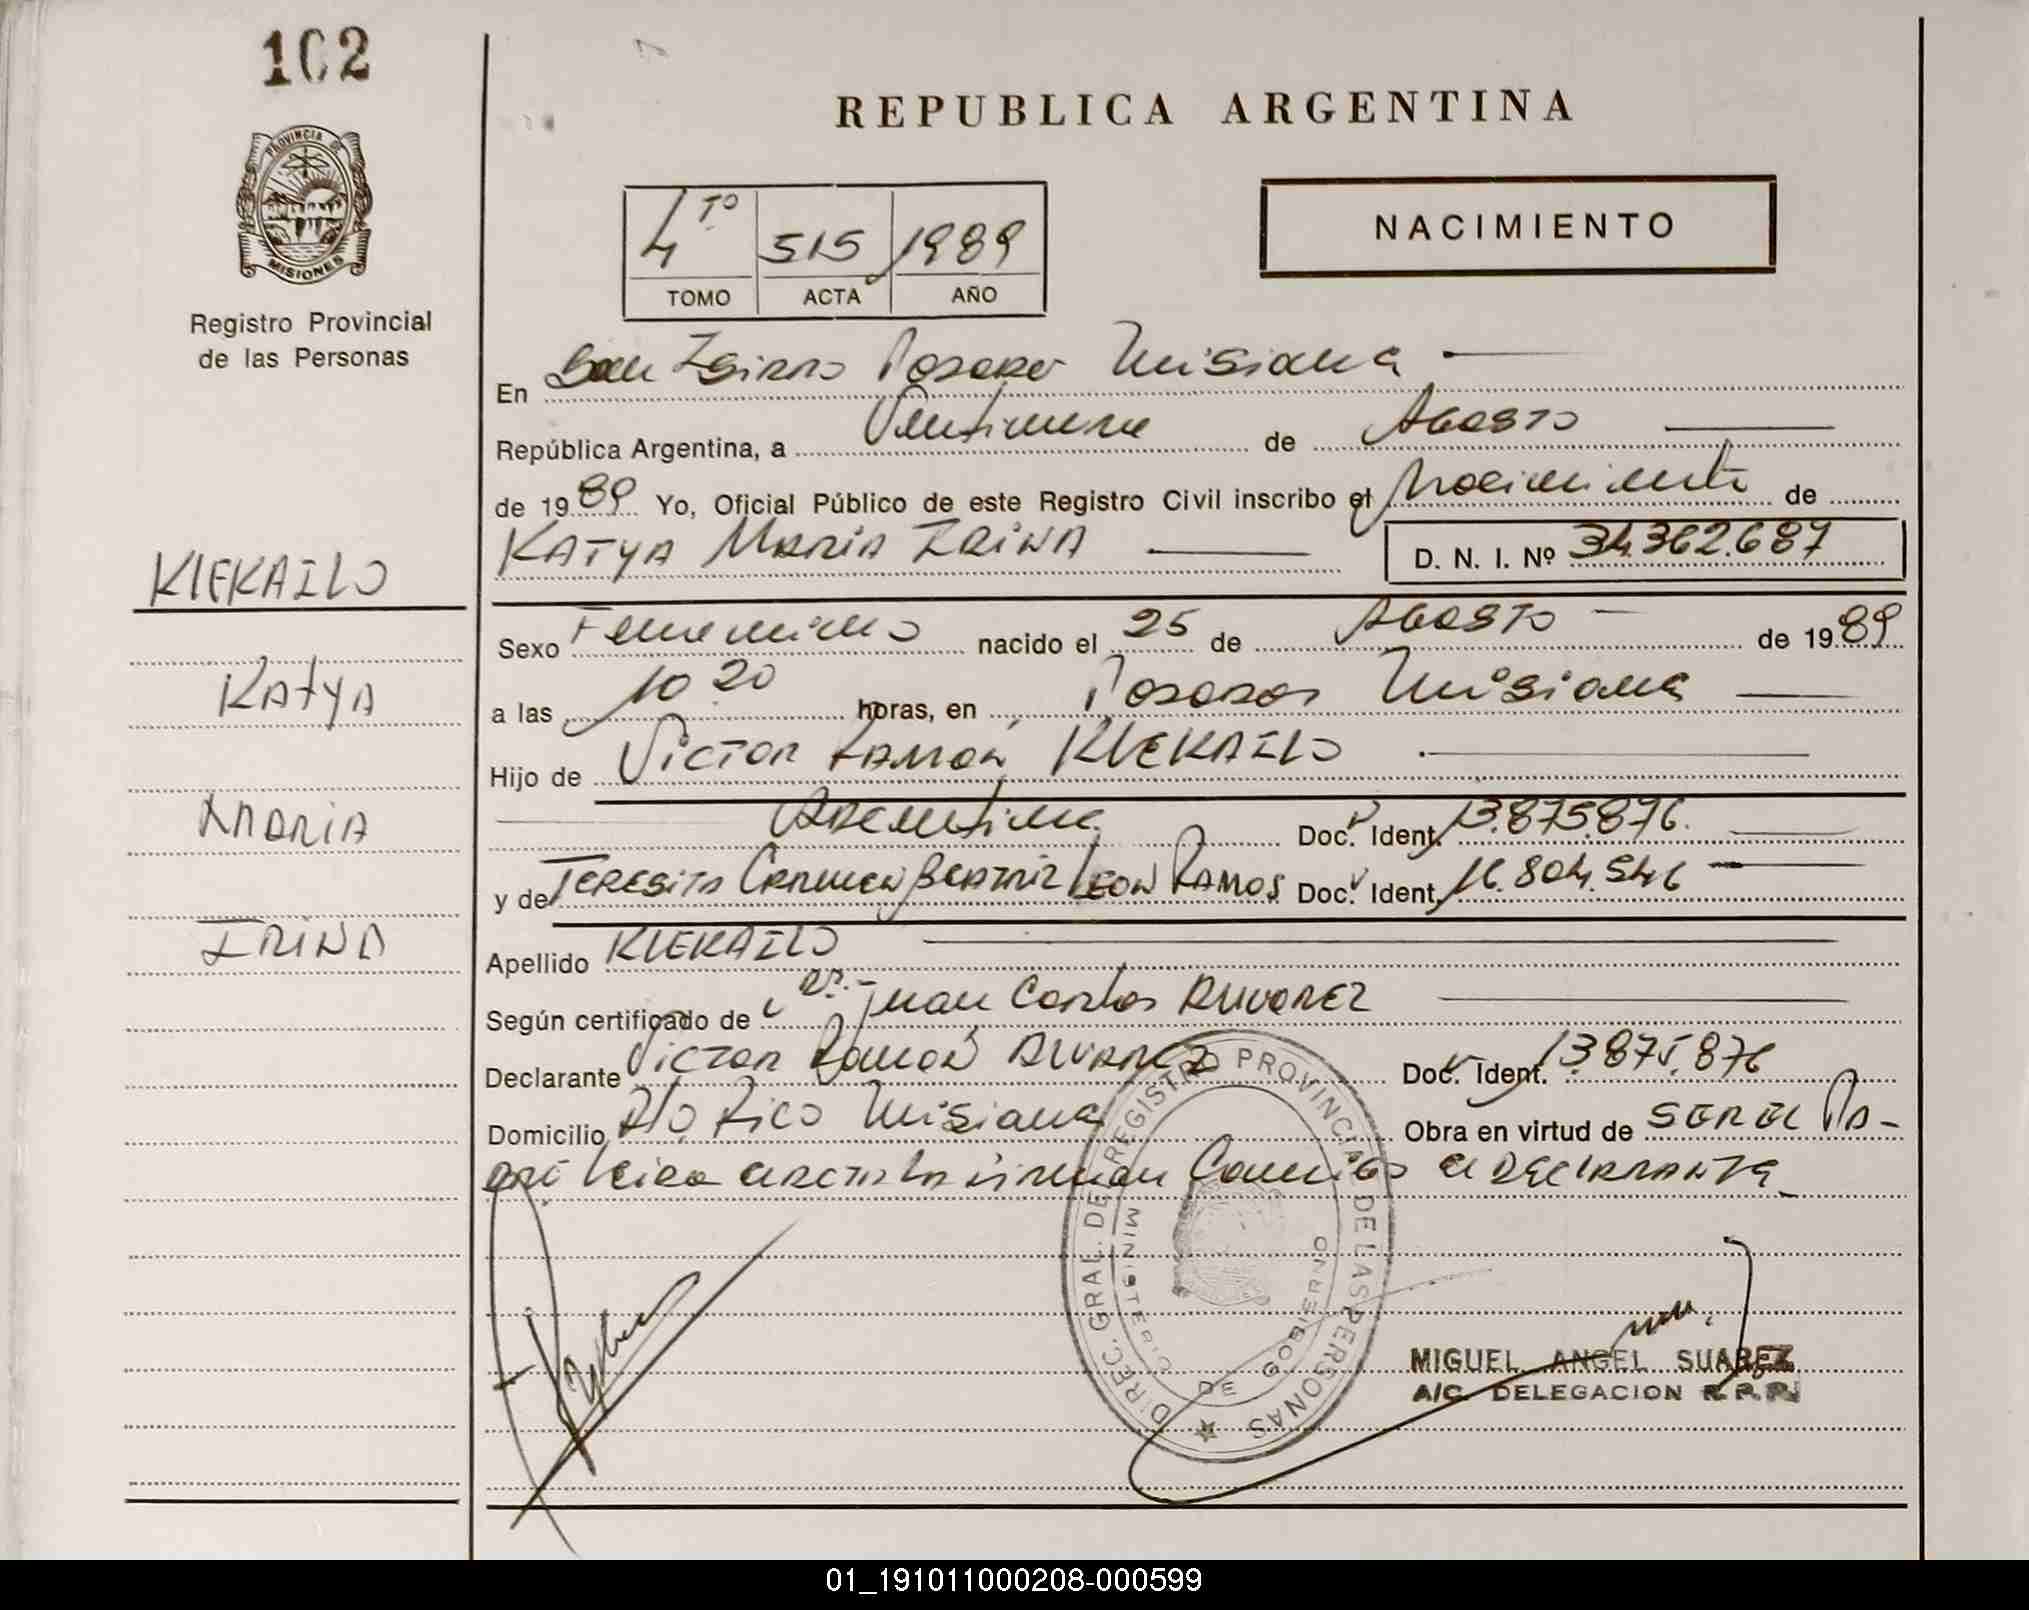 102
REPUBLICA ARGENTINA
PROVINCIA DE
MISIONES
Registro Provincial
de las Personas
NACIMIENTO
4 TO 515 1989
TOMO ACTA AÑO
En San Posadas Misiones
República Argentina, a de Agosto
de 1989 Yo, Oficial Público de este Registro Civil inscribo el Nacimiento de
KATYA MARIA IRINA D. N. I. Nº 34.362.687
KLEKAILO
Katya
MARIA
IRINA
Sexo Femenino nacido el 25 de Agosto de 1989
a las 10 20 horas, en Posadas Misiones
Hijo de Victor Ramon KLEKAILO
Argentina Doc. Ident. 13.875.876.
y de TERESITA CARMEN BEATRIZ LEON RAMOS Doc. Ident. 16.804.546
Apellido KLEKAILO
Según certificado de Dr. Juan Carlos ALVAREZ
Declarante Victor Ramon ALVAREZ Doc. Ident. 13.875.876
Domicilio Pto. Rico Misiones Obra en virtud de SER EL PA-
DRE Leida acta la firman Conmigo el DECLARANTE
DIREC. GRAL. DE REGISTRO PROVINCIAL DE LAS PERSONAS
MINISTERIO DE GOBIERNO
MIGUEL ANGEL SUAREZ
A/C DELEGACION R.P.P.
01_191011000208-000599